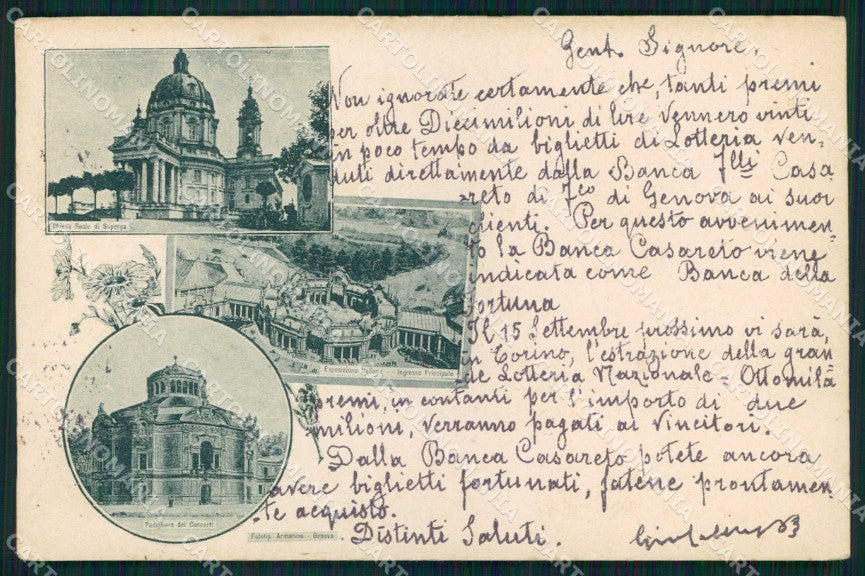 Gent. Signore.
Non ignorate certamente che, tanti premi
per oltre Diecimilioni di lire vennero vinti
in poco tempo da biglietti di Lotteria ven-
duti direttamente dalla Banca F.lli Casa
reto di F.co di Genova ai suoi
clienti. Per questo avvenimen-
to la Banca Casareto viene
indicata come Banca della
Fortuna
Il 15 Settembre prossimo vi sarà,
in Torino, l'estrazione della gran
de Lotteria Nazionale = Ottomila
premi, in contanti per l'importo di due
milioni, verranno pagati ai Vincitori.
Dalla Banca Casareto potete ancora
avere biglietti fortunati, fatene prontamen-
te acquisto.
Distinti Saluti.
Chiesa Reale di Superga
Esposizione Italiana — Ingresso Principale
Padiglione dei Concerti
Fototip. Armanino - Genova
CARTOLINOMANIA